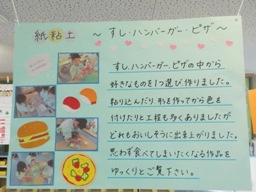 紙粘土 ～すし・ハンバーガー・ピザ～
すし、ハンバーガー、ピザの中から
好きなものを1つ選び作りました。
粘り込んだり、形を作ってから色を
付けたりと工程も多くありましたが
どれもおいしそうに出来上がりました。
思わず食べてしまいたくなる作品を
ゆっくりとご覧下さい。